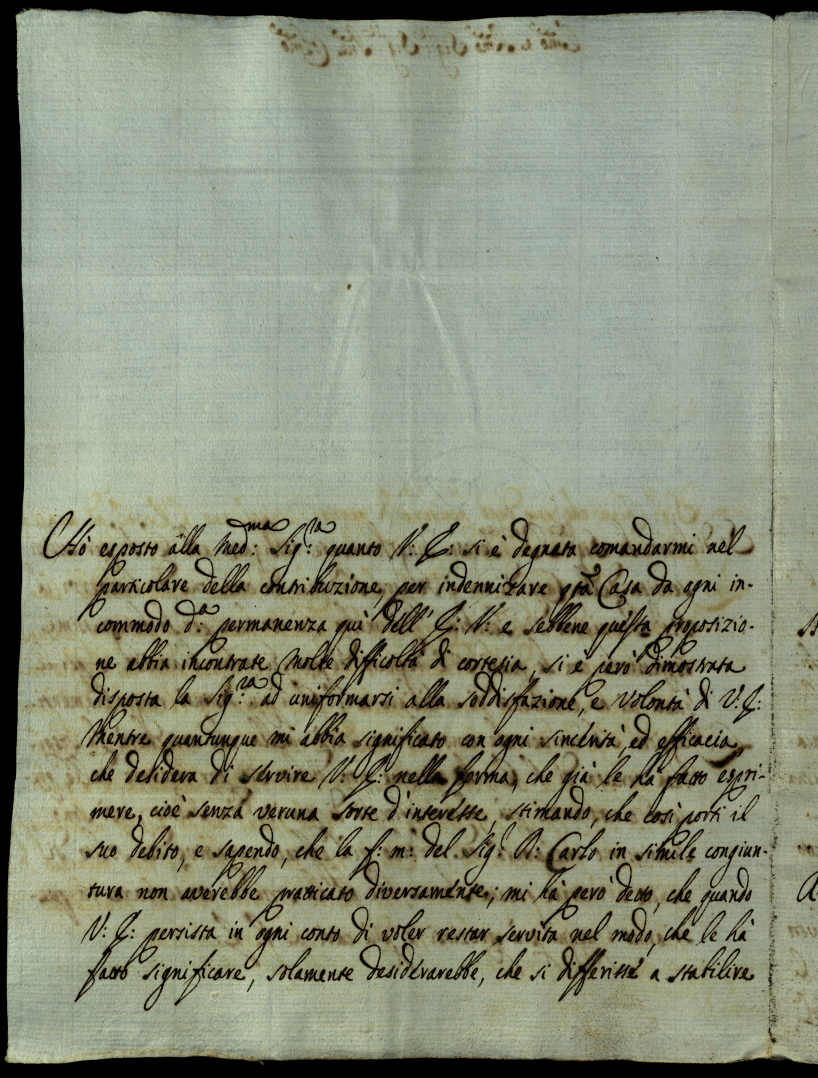 Hò esposto alla Med:ma Sig:ra quanto V: E: si è degnata comandarmi nel
particolare della contribuzione, per indennizare qsta Casa da ogni in-
commodo d:a permanenza quì dell' E: V: e sebbene questa proposizio-
ne abbia incontrate molte difficoltà di cortesia, si è però dimostrata
disposta la Sig:ra ad uniformarsi alla soddisfazione, e volontà di V: E:
Mentre quantunque mi abbia significato con ogni sincerità, ed efficacia
che desidera di servire V: E: nella forma, che già le hà fatto espri-
mere, cioè senza veruna sorte d'interesse, stimando, che così porti il
suo debito, e sapendo, che la f: m: del Sig:r B: Carlo in simile congiun-
tura non averebbe pratticato diversamente; mi hà però detto, che quando
V: E: persista in ogni conto di voler restar servita nel modo, che le hà
fatto significare, solamente desiderarebbe, che si differisse a stabilire